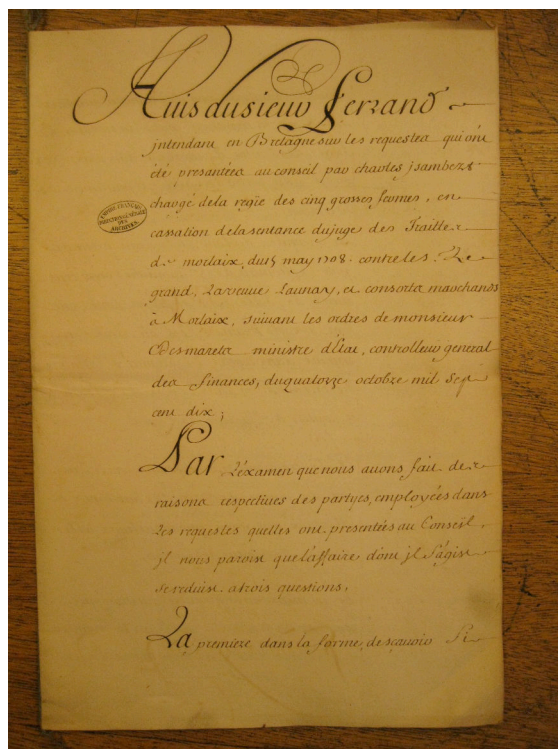 Auis du sieur ferrand
jntendant en Bretagne sur les requestes qui ont
été presantées au conseil par charles jsambert
chargé de la regie des cinq grosses fermes, en
EMPIRE FRANÇAIS
DIRECTION GÉNÉRALE
DES
ARCHIVES
cassation de la sentance du juge des Traittes
de morlaix, du 5 may 1708. contre les. Le
grand, La veuue Launay, et consorts marchands
à Morlaix, suiuant les ordres de monsieur
Desmarets ministre d'Etat, controlleur general
des finances, du quatorze octobre mil sept
cent dix;
Par L'éxamen que nous auons fait des
raisons respectiues des partyes, employées dans
Les requestes quelles ont presentées au Conseil,
jl nous paroist que l'affaire dont jl s'agist
se reduist a trois questions.
La premiere dans la forme, de sçauoir si